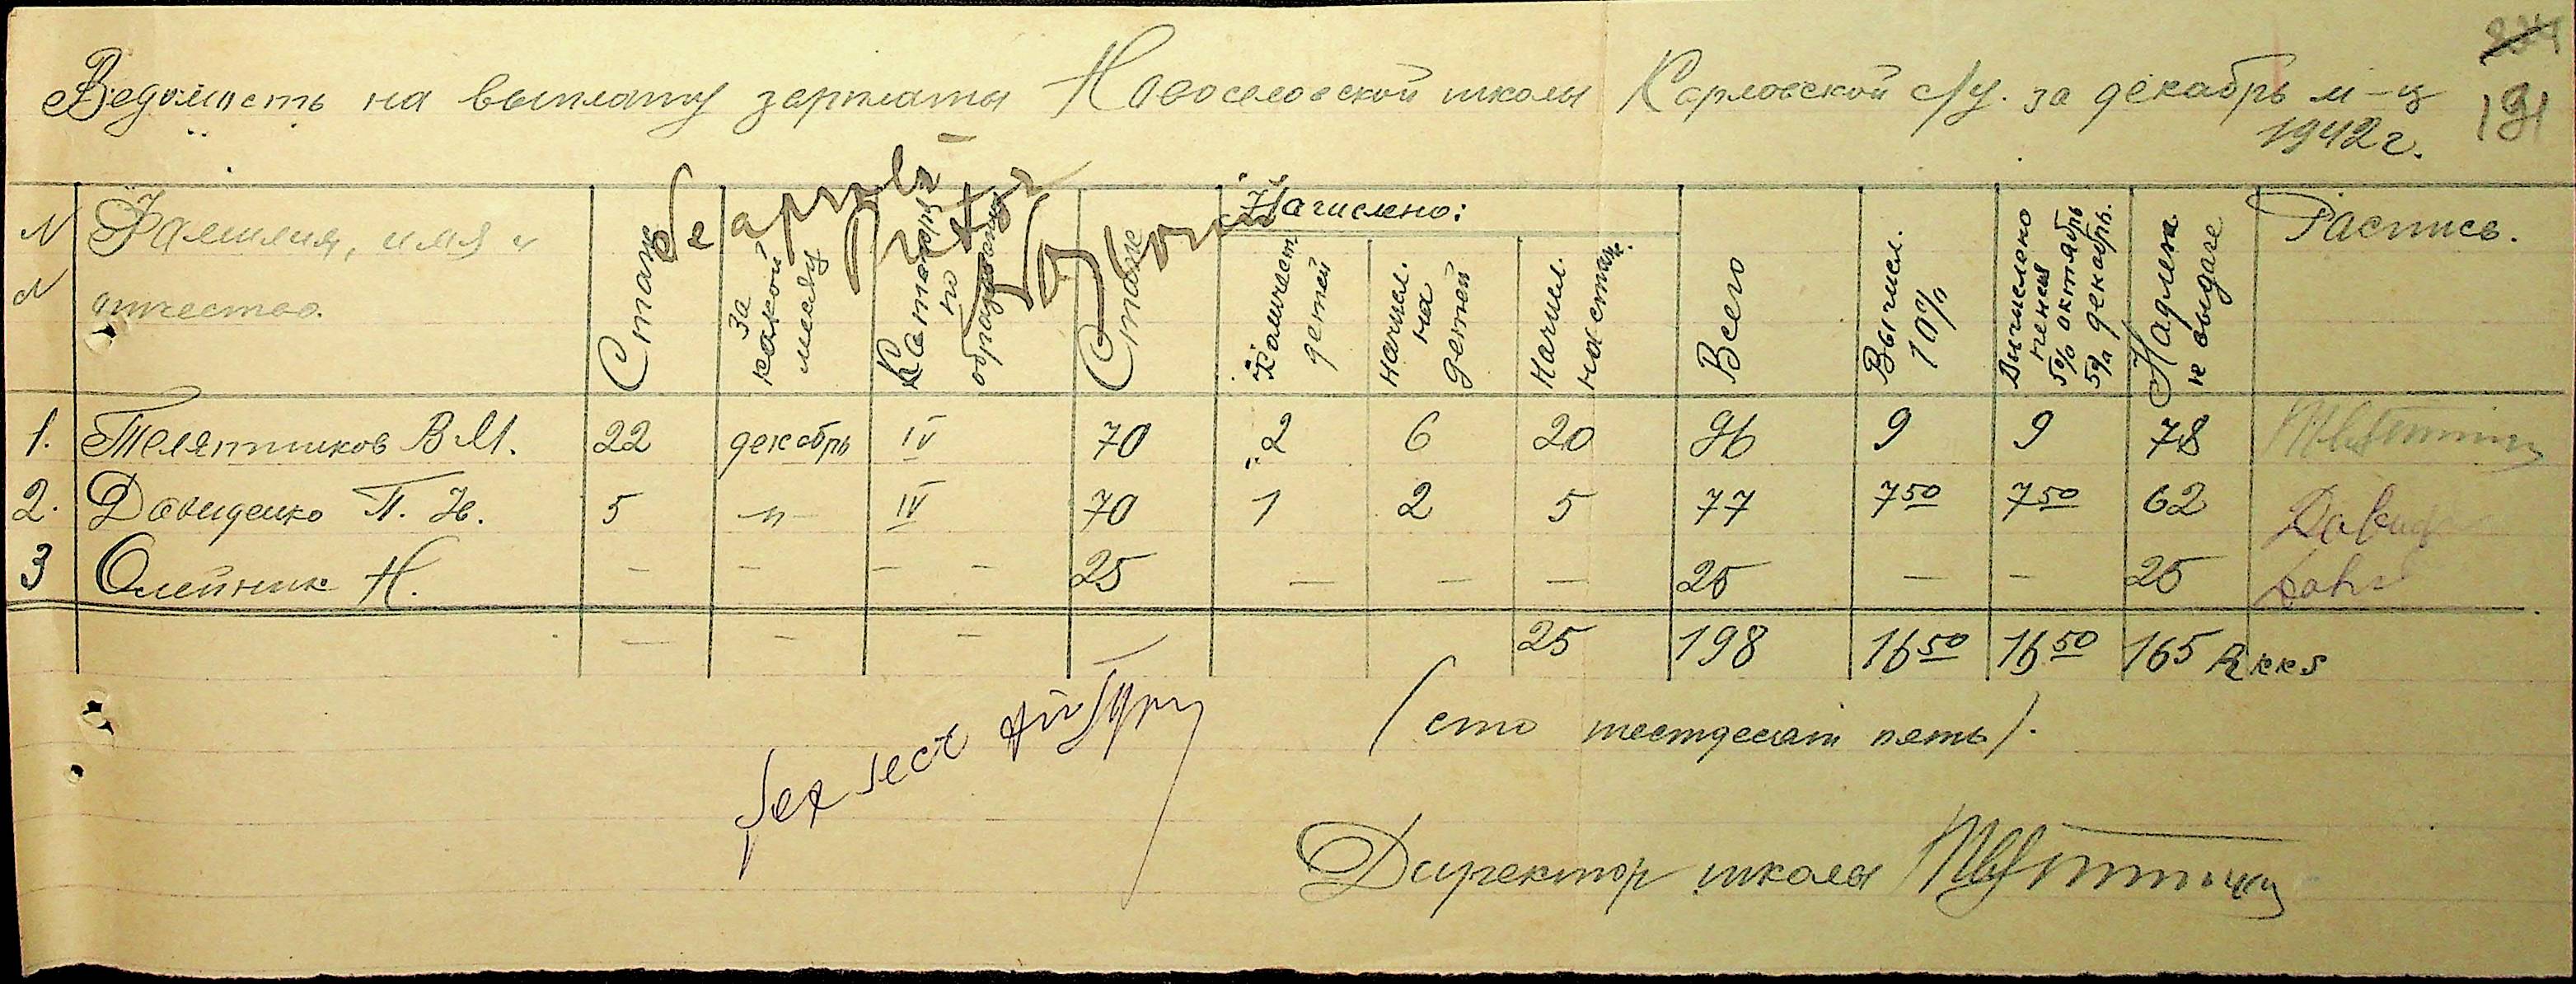 191
Ведомость на выплату зарплаты Новоселовской школы Карловской с/у. за декабрь м-ц
1942 г.
Se aprobă
N N
Фамилия, имя и отчество.
Стаж
За какой месяц
Категория по образованию
Начислено:
Количест детей
Начисл. на детей
Начисл. на стаж.
Всего
Вычисл. 10%
Вычислено пенсия 5% октябрь 5% декабрь.
Надлеж. к выдаче
Распись.
1. Телятников В М. 22 декабрь IV 70 2 6 20 96 9 9 78
2. Давиденко П. Н. 5 -"- IV 70 1 2 5 77 7 50 7 50 62 Давид
3 Олейник Н. — — — — 25 — — — 25 — — 25
— — — — 25 198 16 50 16 50 165 Rkks
(сто шестдесят пять).
Директор школы